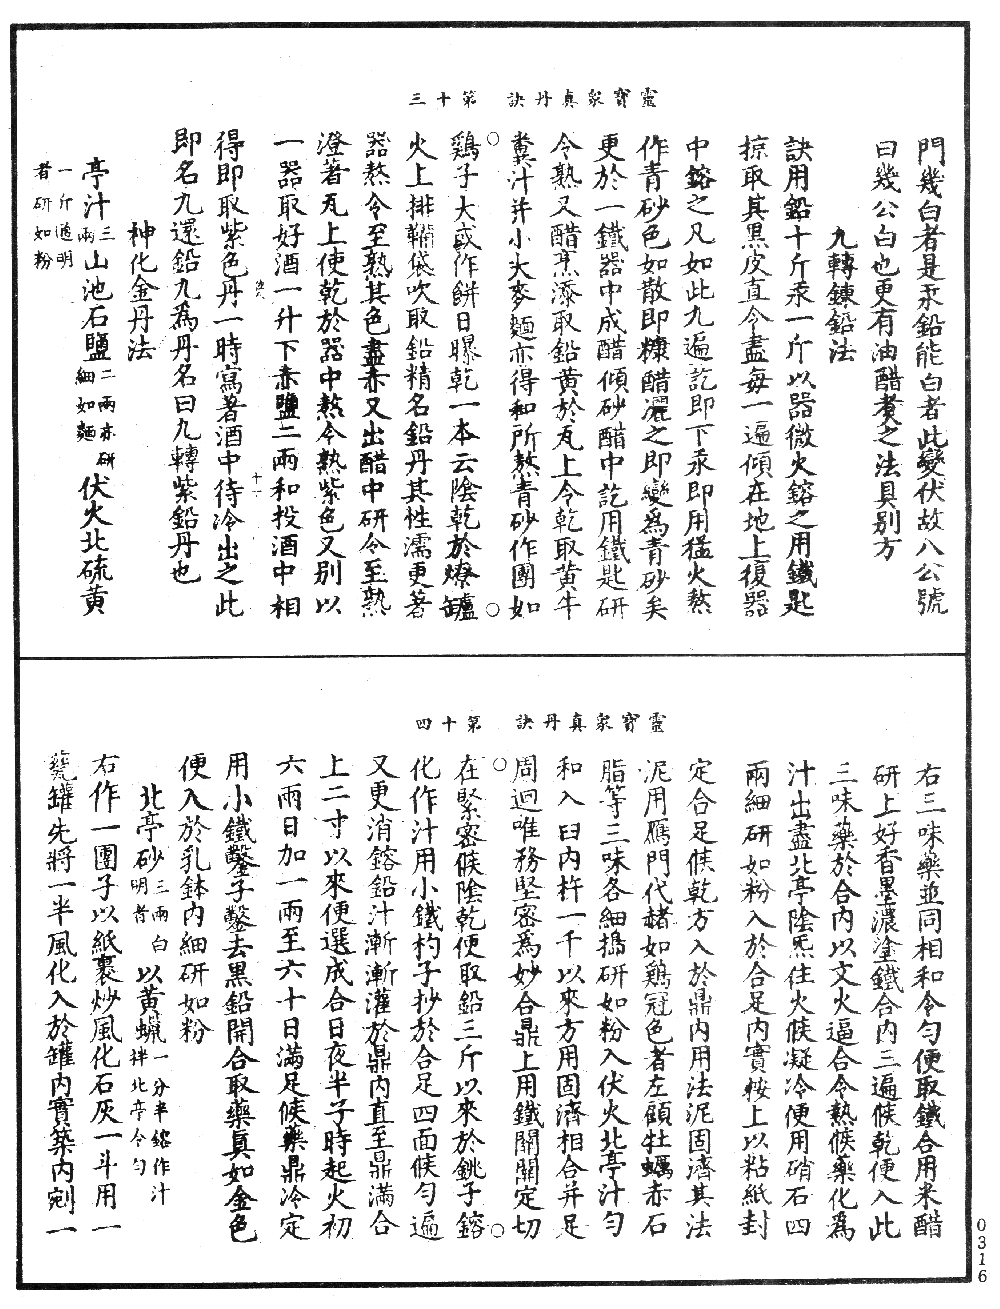 靈寶衆真丹訣　第十三
門幾白者是汞鉛能白者此變伏故八公號
曰幾公白也更有油醋煑之法具别方
九轉鍊鉛法
訣用鉛十斤汞一斤以器微火鎔之用鐵匙
掠取其黑皮直令盡每一遍傾在地上復器
中鎔之凡如此九遍訖即下汞即用猛火熬
作青砂色如散即糠醋灑之即變爲青砂矣
更於一鐵器中成醋傾砂醋中訖用鐵匙研
令熟又醋烹添取鉛黄於瓦上令乾取黄牛
糞汁并小大麥麵亦得和所熬青砂作團如
雞子大或作餅日曝乾一本云陰乾於爎罏
火上排鞴袋吹取鉛精名鉛丹其性濡更著
器熬令至熟其色盡赤又出醋中研令至熟
澄著瓦上使乾於器中熬令熟紫色又别以
一器取好酒一升下赤鹽二兩和投酒中相
得即取紫色丹一時寫著酒中待冷出之此
即名九還鉛九爲丹名曰九轉紫鉛丹也
神化金丹法
亭汁三兩山池石鹽二兩亦研細如麵伏火北硫黄
一斤通明者研如粉
靈寶衆真丹訣　第十四
右三味藥並同相和令勻便取鐵合用米醋
研上好香墨濃塗鐵合内三遍候乾便入此
三味藥於合内以文火逼合令熱候藥化爲
汁出盡北亭陰炁住火候凝冷便用硝石四
兩細研如粉入於合足内實按上以粘紙封
定合足候乾方入於鼎内用法泥固濟其法
泥用鴈門代赭如鷄冠色者左顧牡蠣赤石
脂等三味各細搗研如粉入伏火北亭汁勻
和入臼内杵一千以來方用固濟相合并足
周迴唯務堅密爲妙合鼎上用鐵關關定切
在緊密候陰乾便取鉛三斤以來於銚子鎔
化作汁用小鐵杓子抄於合足四面候勻遍
又更消鎔鉛汁漸漸灌於鼎内直至鼎滿合
上二寸以來便選成合日夜半子時起火初
六兩日加一兩至六十日滿足候藥鼎冷定
用小鐵鑿子鑿去黑鉛開合取藥真如金色
便入於乳鉢内細研如粉
北亭砂三兩白明者以黄蠟一分半鎔作汁拌北亭令勻
右作一團子以紙裹炒風化石灰一斗用一
甆罐先將一半風化入於罐内實築内剜一
0316